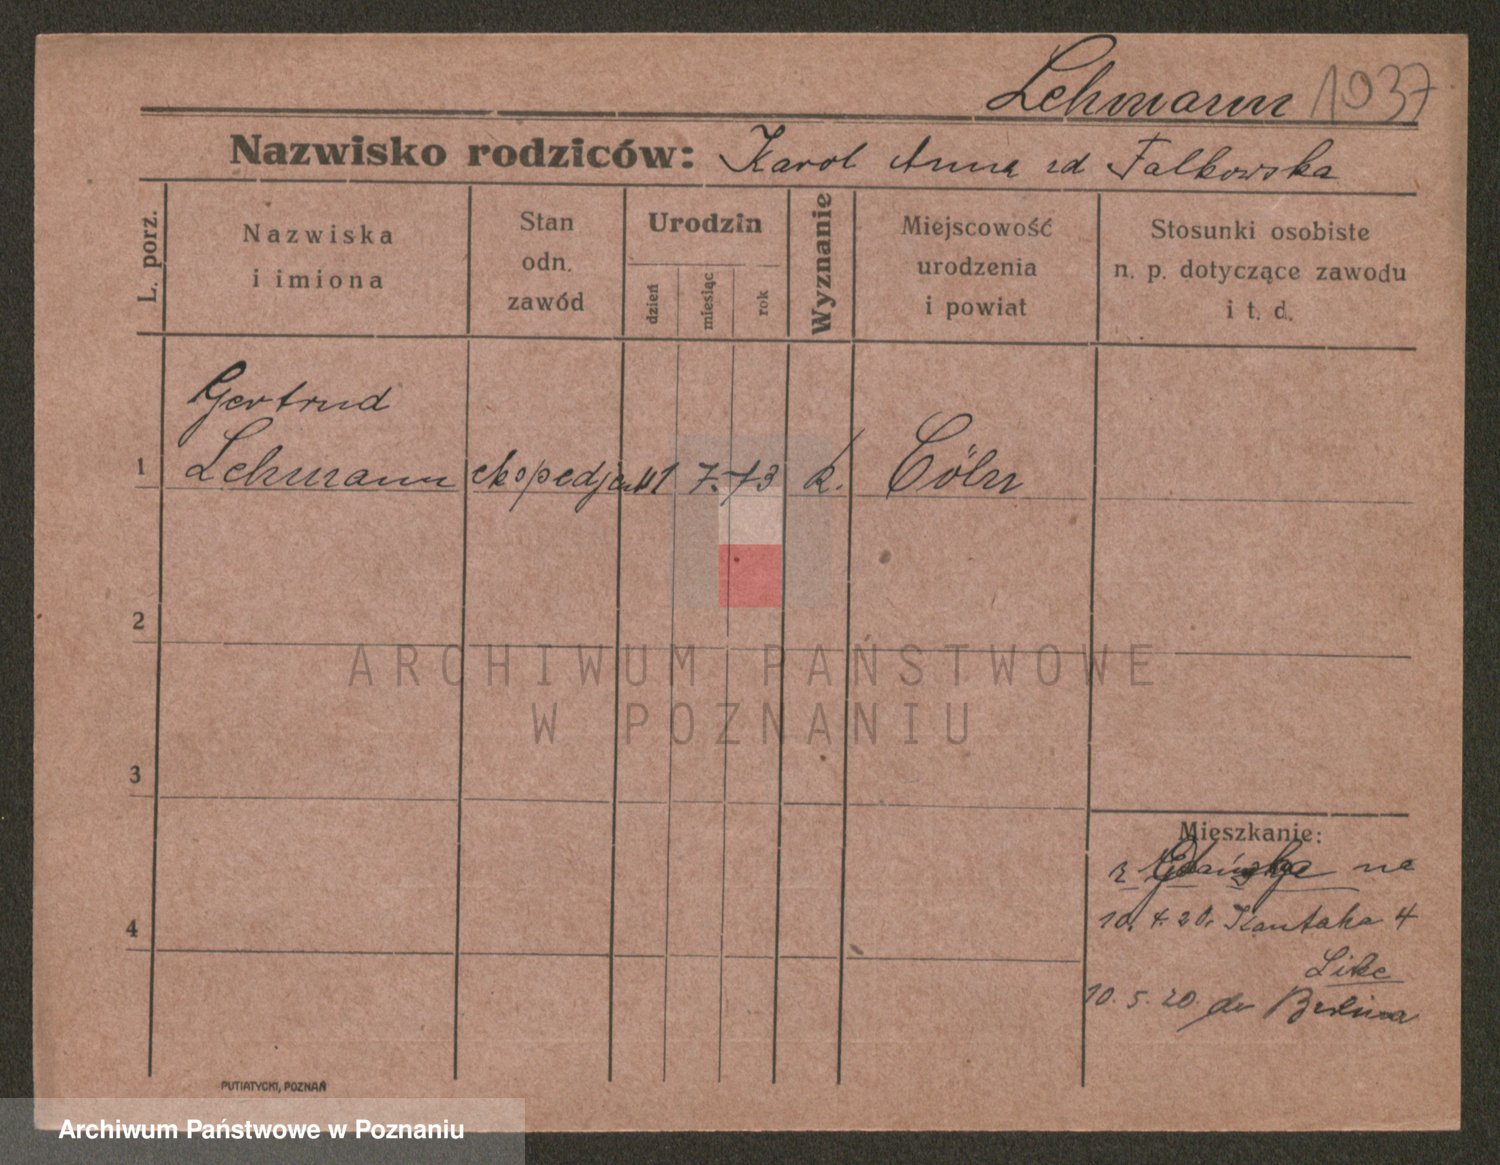 Lehmann 1037
Nazwisko rodziców: Karol Anna zd Falkowska
L. porz.
Nazwiska
i imiona
Stan
odn.
zawód
Urodzin
dzień
miesiąc
rok
Wyznanie
Miejscowość
urodzenia
i powiat
Stosunki osobiste
n. p. dotyczące zawodu
i t. d.
Gertrud
1 Lehmann 7. 73 k. Cöln
2
ARCHIWUM PAŃSTWOWE
W POZNANIU
3
Mieszkanie:
z Gdańska na
10. 4. 20. Kantaka 4
4
10. 5. 20. do Berlina
PUTIATYCKI, POZNAŃ
Archiwum Państwowe w Poznaniu